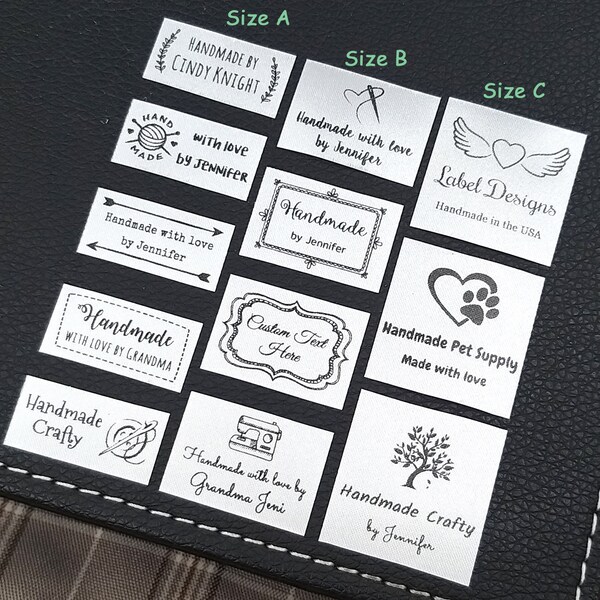 Size A
HANDMADE BY
CINDY KNIGHT
HAND
MADE
with love
by JENNIFER
Handmade with love
by Jennifer
Handmade
WITH LOVE BY GRANDMA
Handmade
Crafty
Size B
Handmade with love
by Jennifer
Handmade
by Jennifer
Custom Text
Here
Handmade with love by
Grandma Jeni
Size C
Label Designs
Handmade in the USA
Handmade Pet Supply
Made with love
Handmade Crafty
by Jennifer